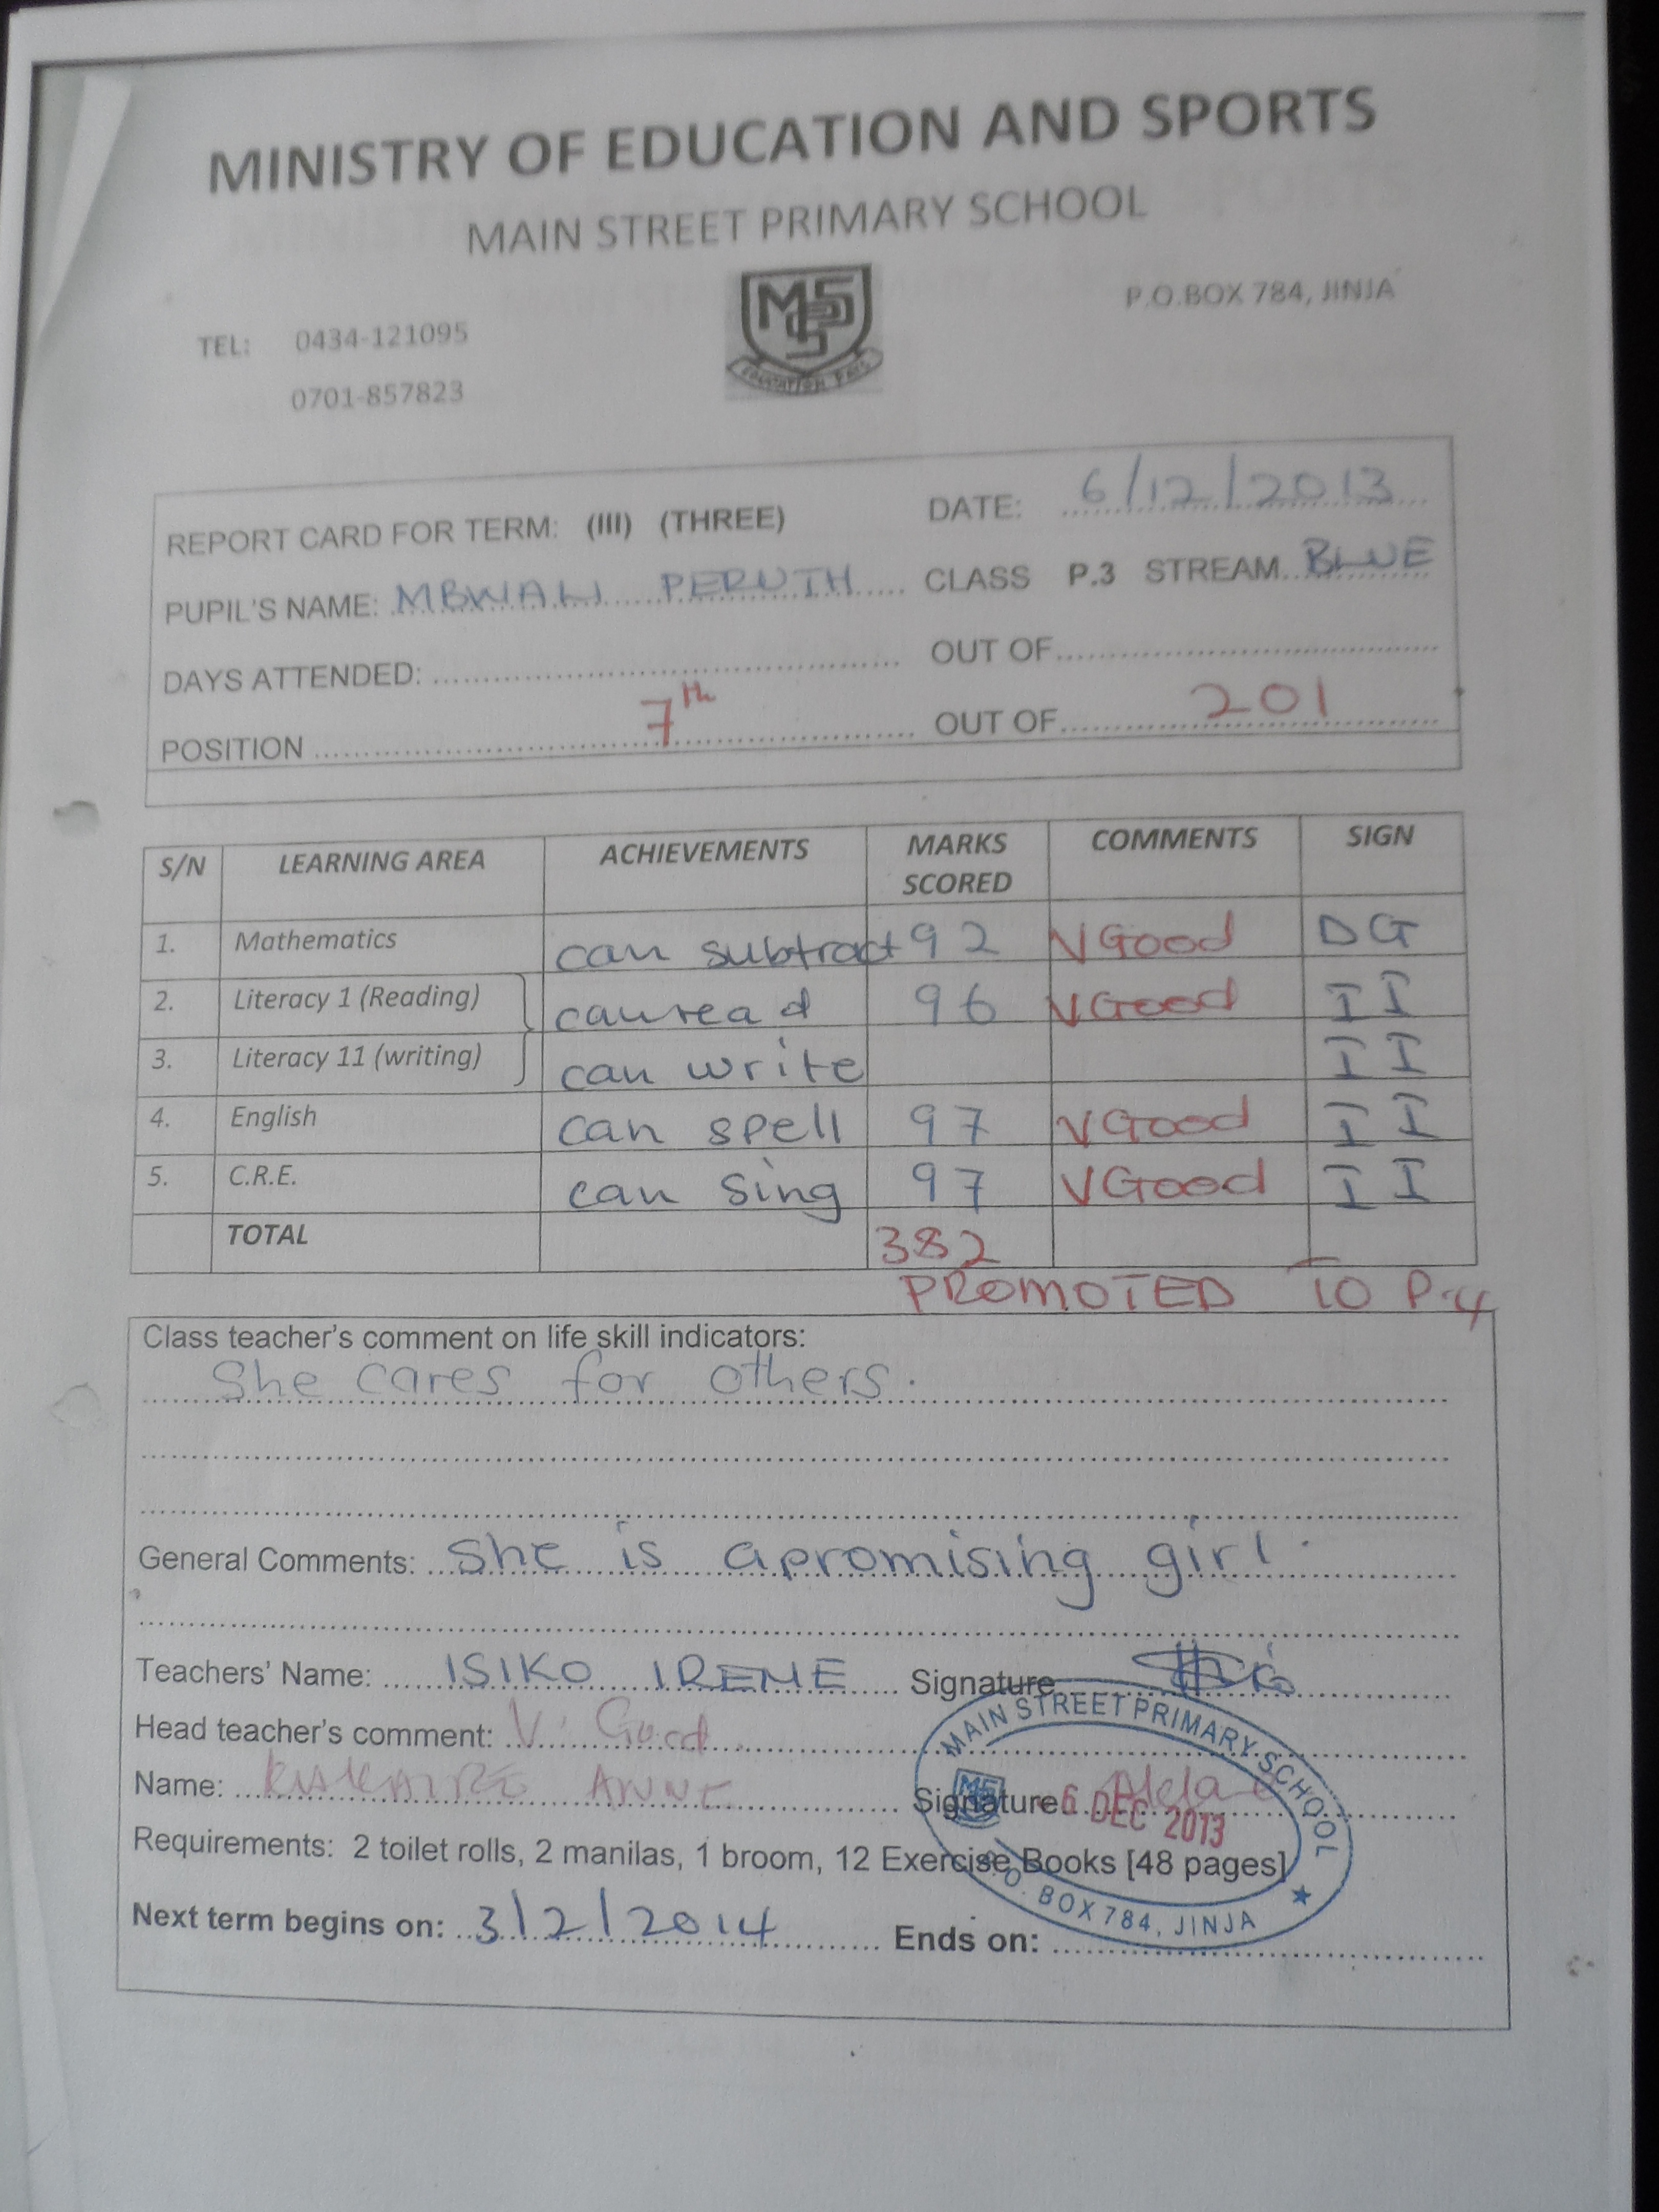 MINISTRY OF EDUCATION AND SPORTS
MAIN STREET PRIMARY SCHOOL
P.O.BOX 784, JINJA
MSPS
TEL: 0434-121095
0701-857823
REPORT CARD FOR TERM: (III) (THREE) DATE: 6/12/2013
PUPIL'S NAME: MBWALI PERUTH CLASS P.3 STREAM BLUE
DAYS ATTENDED: OUT OF
POSITION 7th OUT OF 201
S/N LEARNING AREA ACHIEVEMENTS MARKS SCORED COMMENTS SIGN
1. Mathematics can subtract 92 VGood DG
2. Literacy 1 (Reading) can read 96 VGood II
3. Literacy 11 (writing) can write II
4. English can spell 97 VGood II
5. C.R.E. can sing 97 VGood II
TOTAL 382
PROMOTED TO P.4
Class teacher's comment on life skill indicators:
She cares for others.
General Comments: She is apromising girl.
Teachers' Name: ISIKO IRENE Signature
Head teacher's comment: V. Good
Name: ANNE Signature
MAIN STREET PRIMARY SCHOOL
6 DEC 2013
P.O. BOX 784, JINJA
Requirements: 2 toilet rolls, 2 manilas, 1 broom, 12 Exercise Books [48 pages]
Next term begins on: 3/2/2014 Ends on: